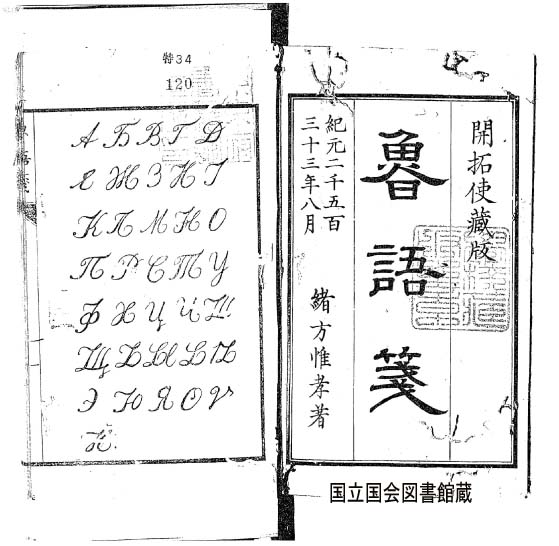 開拓使蔵版
魯語箋
紀元二千五百
三十三年八月
緒方惟孝著
特34
120
А Б В Г Д
Е Ж З И І
К Л М Н О
П Р С Т У
Ф Х Ц Ч Ш
Щ Ъ Ы Ь Ѣ
Э Ю Я Ѳ Ѵ
国立国会図書館蔵